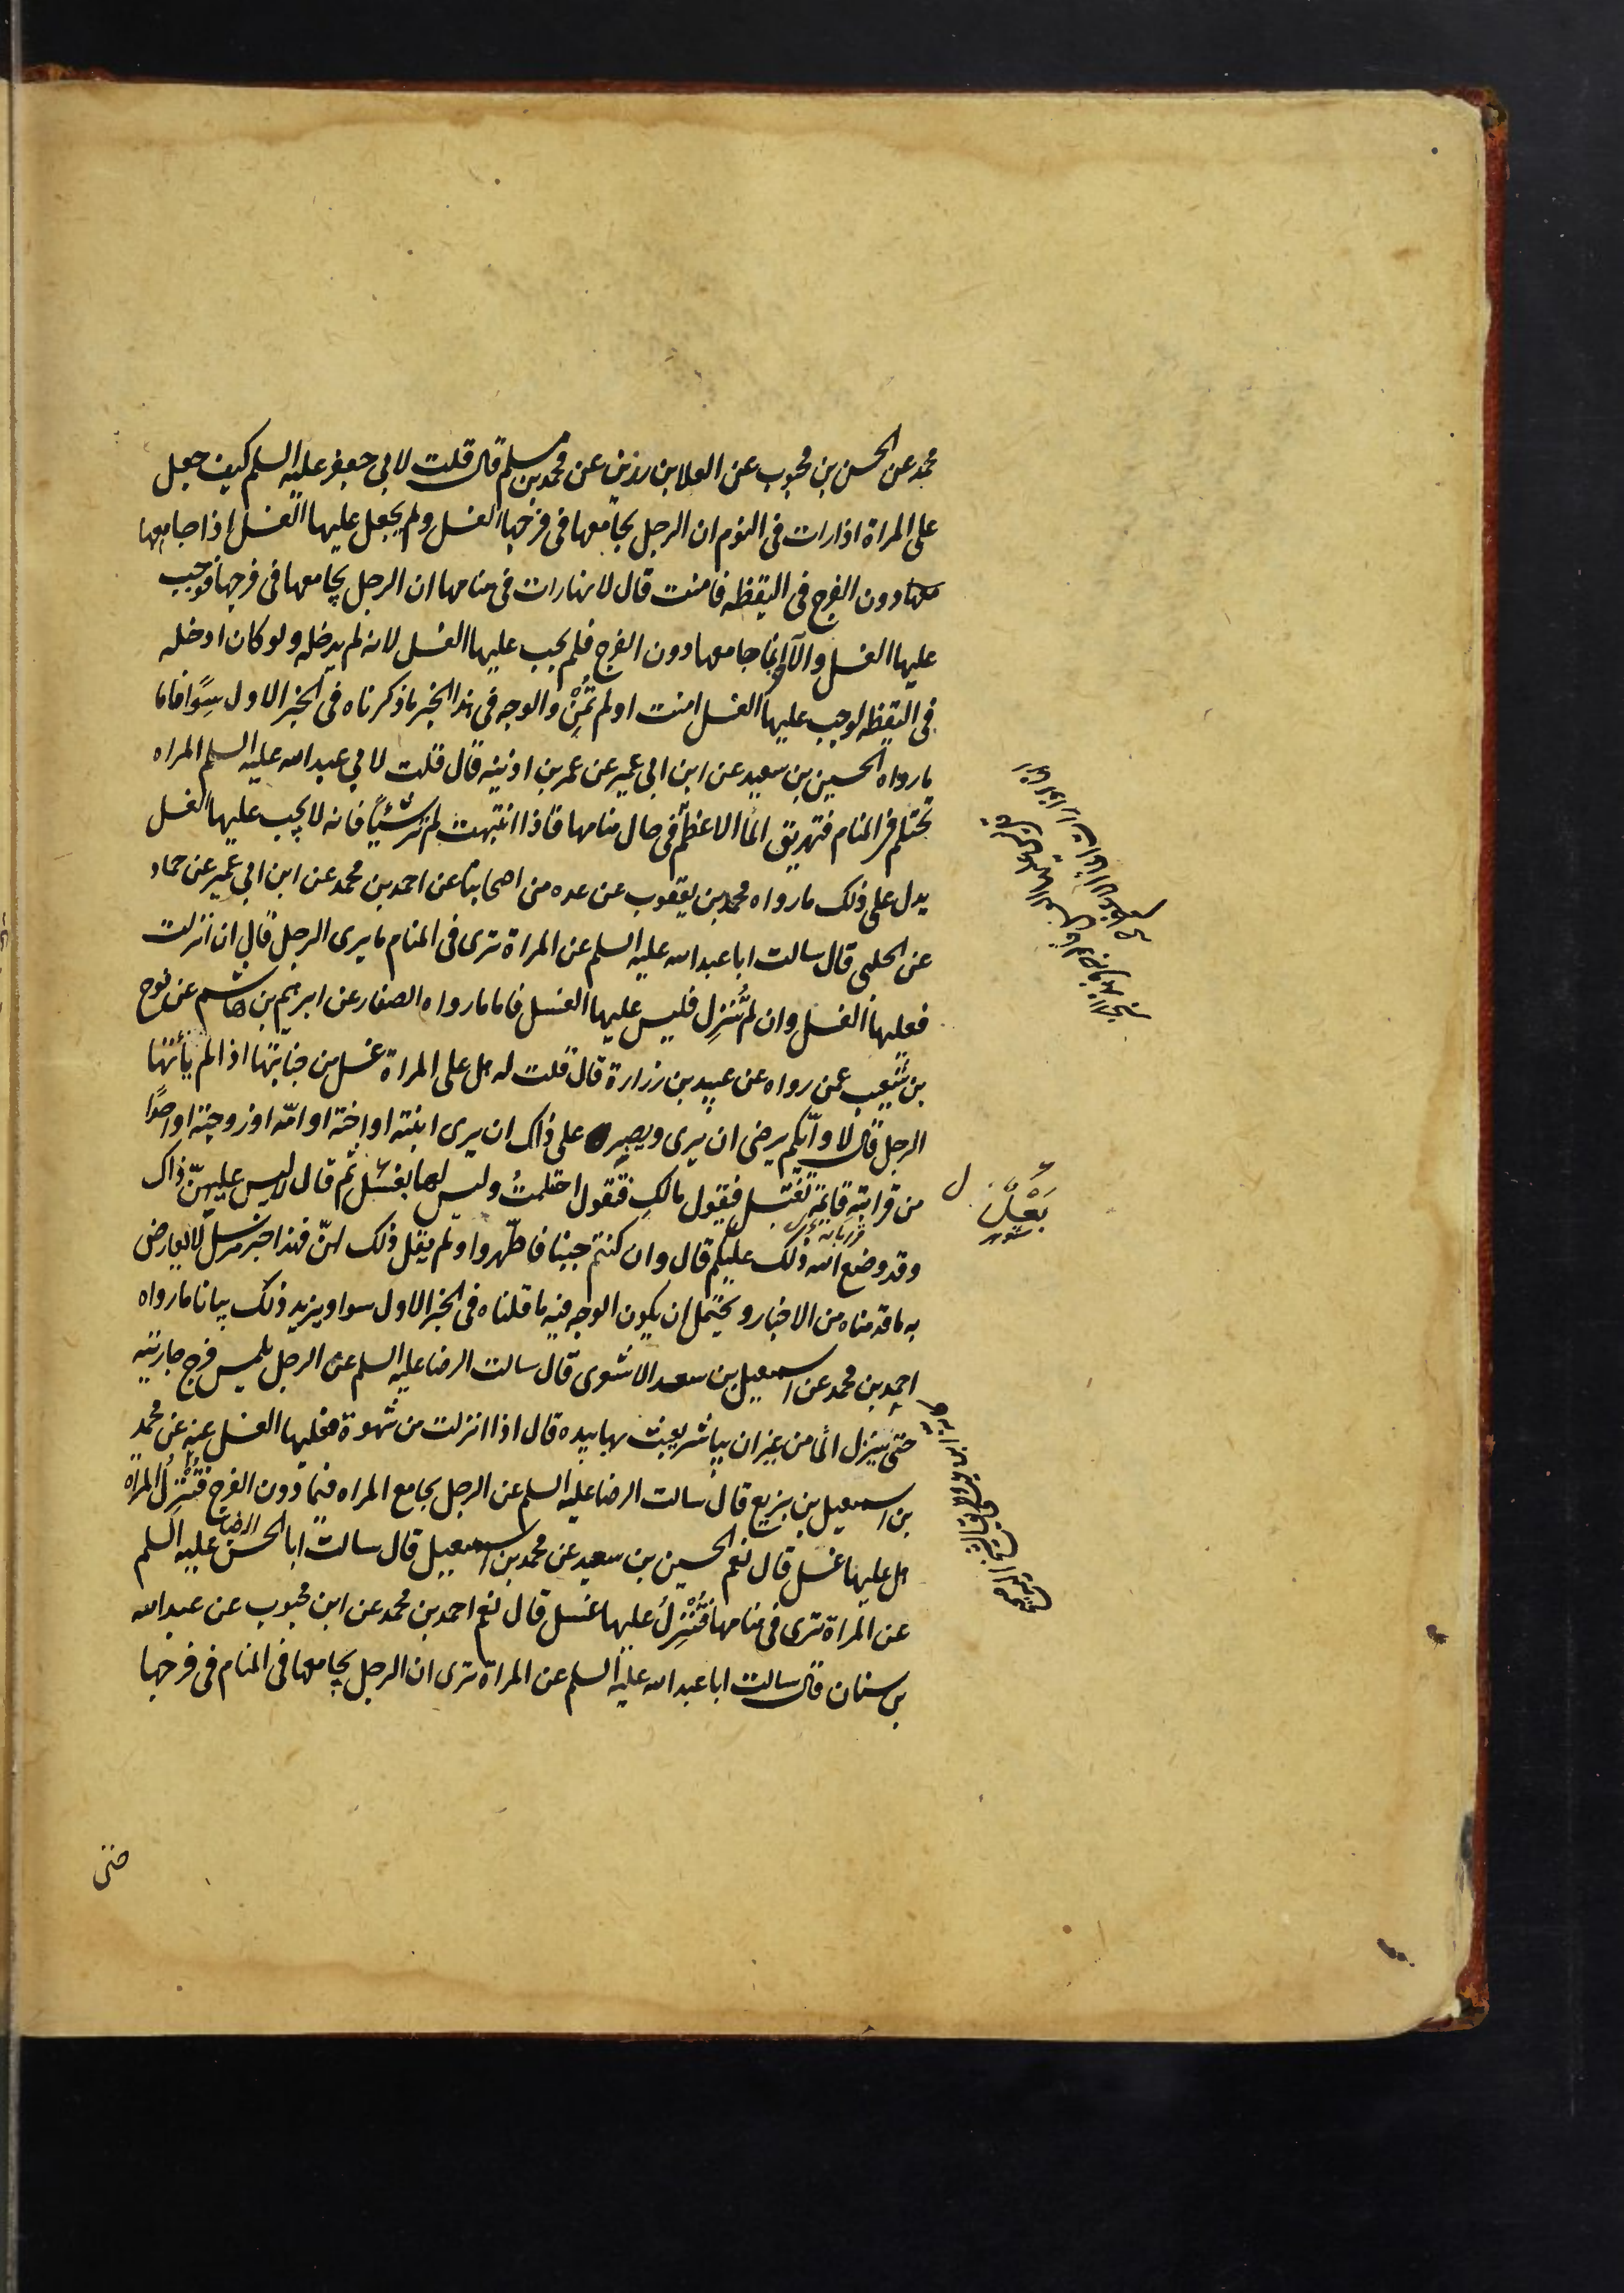 محمد عن الحسن بن محبوب عن العلا بن رزين عن محمد بن مسلم قال قلت لابي جعفر عليه السلم كيف جعل
على المراة اذا رات في النوم ان الرجل يجامعها في فرجها الغسل ولم يجعل عليها الغسل اذا جامعها
دون الفرج في اليقظه فامنت قال لانها رات في منامها ان الرجل يجامعها في فرجها فوجب
عليها الغسل والاخر انما جامعها دون الفرج فلم يجب عليها الغسل لانه لم يدخله ولو كان ادخله
في اليقظه لوجب عليها الغسل امنت او لم تُمْنِ والوجه في هذا الخبر ما ذكرناه في الخبر الاول سوا فاما
ما رواه الحسين بن سعيد عن ابن ابي عمير عن عمر بن اذينه قال قلت لابي عبد الله عليه السلم المراه
تحتلم في المنام فتهريق الما الاعظم في حال منامها فاذا انتبهت لم تر شيئاً فانه لا يجب عليها الغسل
يدل على ذلك ما رواه محمد بن يعقوب عن عده من اصحابنا عن احمد بن محمد عن ابن ابي عمير عن حماد
عن الحلبي قال سالت ابا عبد الله عليه السلم عن المراة ترى في المنام ما يرى الرجل قال ان انزلت
فعليها الغسل وان لم تُنزِل فليس عليها الغسل فاما ما رواه الصفار عن ابرهيم بن هاشم عن نوح
بن شعيب عمن رواه عن عبيد بن زرارة قال قلت له هل على المراة غسل من جنابتها اذا لم يأتها
الرجل قال لا وايّكم يرضى ان يرى ويصبر على ذاك ان يرى ابنته او اخته او امّه او زوجته او احدًا
من قرابته قايمة تغتسل فيقول مالكِ فتقول احتلمتُ وليس لها بعل ثم قال لا ليس عليهنّ ذاك
وقد وضع الله ذلك عليكم قال وان كنتم جنبا فاطّهروا ولم يقل ذلك لهنّ فهذا خبر مرسل لا يعارض
به ما قدمناه من الاخبار ويحتمل ان يكون الوجه فيه ما قلناه في الخبر الاول سوا ويزيد ذلك بيانا ما رواه
احمد بن محمد عن اسمعيل بن سعد الاشعرى قال سالت الرضا عليه السلم عن الرجل يلمس فرج جاريته
حتى ينزل الما من غير ان يباشر يعبث بها بيده قال اذا انزلت من شهوة فعليها الغسل عنه عن محمد
بن اسمعيل بن بزيع قال سالت الرضا عليه السلم عن الرجل يجامع المراه فيما دون الفرج فتُنْزِلُ المراة
هل عليها غسل قال نعم الحسين بن سعيد عن محمد بن اسمعيل قال سالت ابا الحسن الرضا عليه السلم
عن المراة ترى في منامها فتُنْزِلُ عليها غسل قال نعم احمد بن محمد عن ابن محبوب عن عبد الله
بن سنان قال سالت ابا عبد الله عليه السلم عن المراة ترى ان الرجل يجامعها في المنام في فرجها
بَعْلٌ
حتى